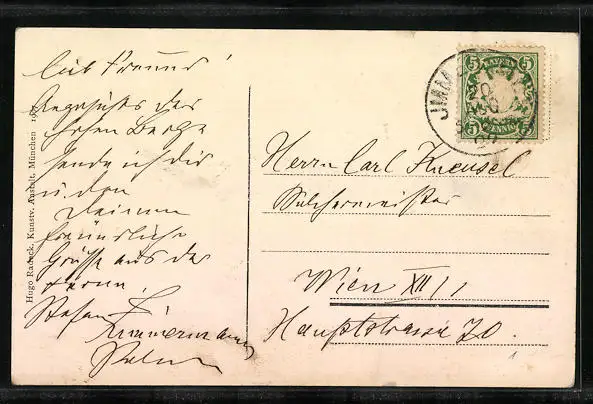 Lieb Freund!
Angesichts der
hohen Berge
sende ich dir
u. den
Deinen
freundliche
Grüße aus der
Ferne!
Stefan
Hugo Radock, Kunstv. Anstalt, München
BAYERN
5 5
PFENNIG
Herrn Carl Kneusel
Selchermeister
Wien XII/1
Hauptstrasse 70.